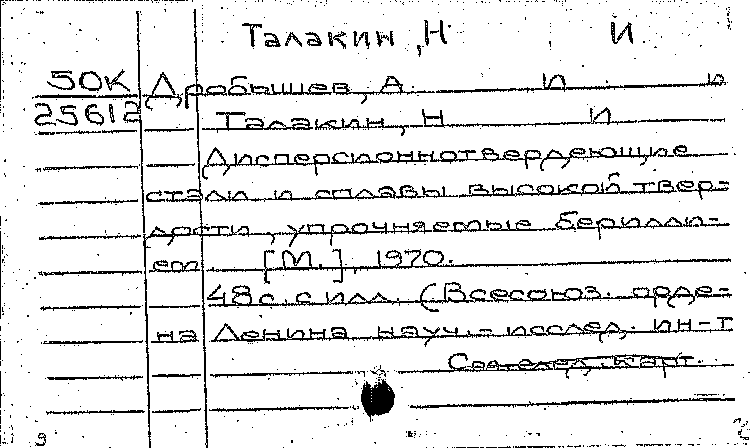 Талакин, Н И
50К Дробышев, А. И. и
25612 Талакин, Н И
Дисперсионнотвердеющие
стали и сплавы высокой твер-
дости, упрочняемые берилли-
ем. [М.], 1970.
48 с. с илл. (Всесоюз. орде-
на Ленина науч.-исслед. ин-т
См. след. карт.